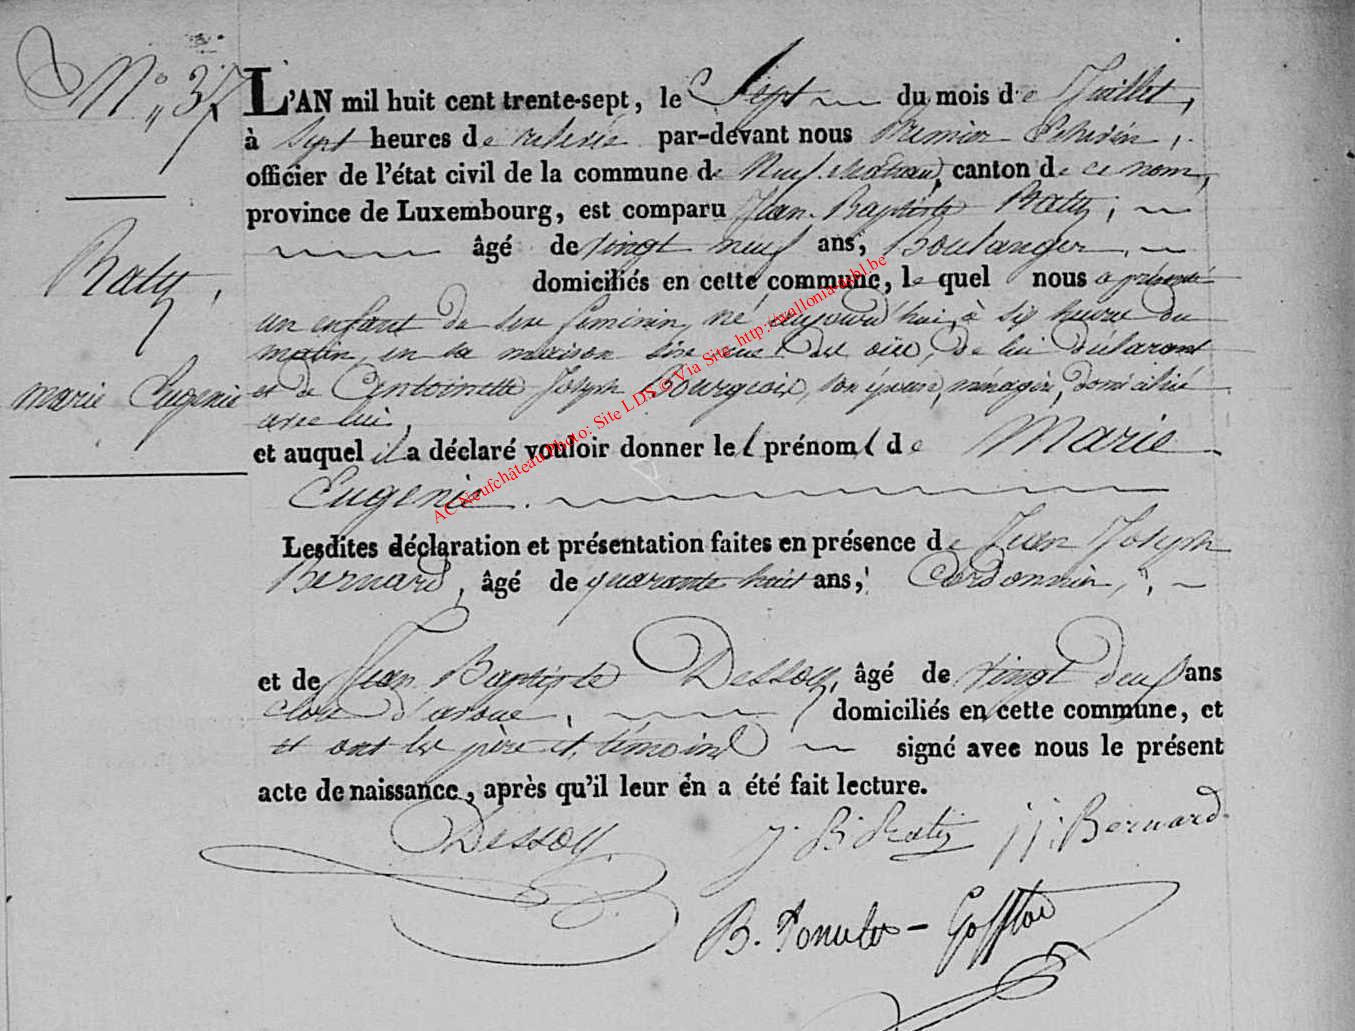 N° 37
L'AN mil huit cent trente-sept, le Sept du mois de Juillet,
à Sept heures de relevée par-devant nous premier Echevin,
officier de l'état civil de la commune de Neufchateau, canton de ce nom,
province de Luxembourg, est comparu Jean Baptiste Raty,
âgé de vingt neuf ans, Boulanger,
domiciliés en cette commune, le quel nous a présenté
un enfant du sexe feminin, né aujourd'hui, à six heures du
matin, en sa maison sise rue de lui declarant
et de Antoinette Joseph Bourgeois, son épouse, ménagère, domiciliée
avec lui,
et auquel il a déclaré vouloir donner les prénoms de Marie
Eugenie.
Lesdites déclaration et présentation faites en présence de Jean Joseph
Bernard, âgé de quarante huit ans, Cordonnier,
et de Jean Baptiste Dessoy, âgé de vingt deux ans
clerc d'avoué, domiciliés en cette commune, et
et ont les père et témoins signé avec nous le présent
acte de naissance, après qu'il leur en a été fait lecture.
Raty,
marie Eugenie
Dessoy J. B. Raty J J. Bernard
B.
AC Neufchâteau Photo: Site LDS © Via Site http://wallonia-asbl.be